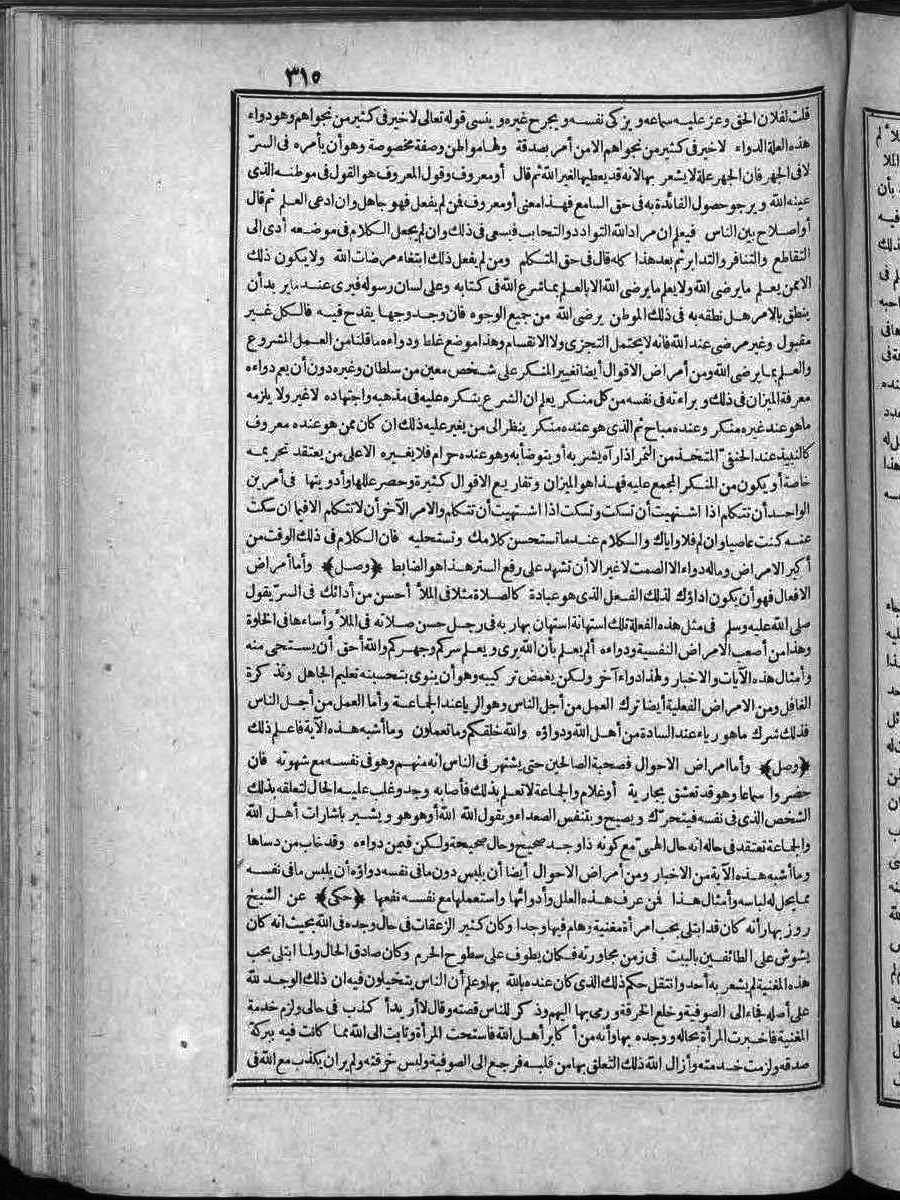 ٣١٥
قلت لفلان الحق وعز عليه سماعه ويزكى نفسه ويجرح غيره وينسى قوله تعالى لاخير فى كثير من نجواهم وهو دواء
هذه العلة الدواء لاخير فى كثير من نجواهم الا من أمر بصدقة ولها مواطن وصفة مخصوصة وهو أن يأمره فى السرّ
لا فى الجهر فان الجهر علة لا يشعر بها لانه قد يعطيها لغير الله ثم قال أو معروف وقول المعروف هو القول فى موطنه الذى
عينه الله ويرجو حصول الفائدة به فى حق السامع فهذا معنى أو معروف فمن لم يفعل فهو جاهل وان ادعى العلم ثم قال
أو اصلاح بين الناس فيعلم ان مراد الله التوادد والتحابب فيسعى فى ذلك وان لم يجعل الكلام فى موضعه أدى الى
التقاطع والتنافر والتدابر ثم بعد هذا كله قال فى حق المتكلم ومن لم يفعل ذلك ابتغاء مرضات الله ولا يكون ذلك
الا ممن يعلم ما يرضى الله ولا يعلم ما يرضى الله الا بالعلم بما شرع الله فى كتابه وعلى لسان رسوله فيرى عند ما يريد أن
ينطق بالامر هل نطقه به فى ذلك الموطن يرضى الله من جميع الوجوه فان وجد وجها يقدح فيه فالكل غير
مقبول وغير مرضى عند الله فانه لا يحتمل التجزى ولا الانقسام وهذا موضع غلط ودواءه ما قلنا من العمل المشروع
والعلم بما يرضى الله ومن أمراض الاقوال أيضا تغيير المنكر على شخص معين من سلطان وغيره دون أن يعم دواءه
معرفة الميزان فى ذلك وبراءته فى نفسه من كل منكر يعلم ان الشرع ينكره عليه فى مذهبه واجتهاده لا غير ولا يلزمه
ما هو عند غيره منكر وعنده مباح ثم الذى هو عنده منكر ينظر الى من يغير عليه ذلك ان كان ممن هو عنده معروف
كالنبيذ عند الحنفىّ المتخذ من التمر اذا رآه يشربه أو يتوضأ به وهو عنده حرام فلا يغيره الا على من يعتقد تحريمه
خاصة أو يكون من المنكر المجمع عليه فهذا هو الميزان وتفاريع الاقوال كثيرة وحصر عللها وأدويتها فى أمرين
الواحد أن تتكلم اذا اشتهيت أن تسكت وتسكت اذا اشتهيت أن تتكلم والامر الآخر أن لا تتكلم الا فيما ان سكت
عنه كنت عاصيا وان لم فلا واياك والكلام عند ما تستحسن كلامك وتستحليه فان الكلام فى ذلك الوقت من
أكبر الامراض وماله دواء الا الصمت لا غير الا أن تشهد على رفع الستر هذا هو الضابط ﴿وصل﴾ وأما أمراض
الافعال فهو أن يكون اداؤك لذلك الفعل الذى هو عبادة كالصلاة مثلا فى الملأ أحسن من أدائك فى السرّ يقول
صلى الله عليه وسلم فى مثل هذه الفعلة تلك استهانة استهان بها ربه فى رجل حسن صلاته فى الملأ وأساءها فى الخلوة
وهذا من أصعب الامراض النفسية ودواءه ألم يعلم بأن الله يرى ويعلم سركم وجهركم والله أحق أن يستحيى منه
وأمثال هذه الآيات والاخبار ولهذا دواء آخر ولكن يغمض تركيبه وهو أن ينوى بتحسينه تعليم الجاهل وتذكرة
الغافل ومن الامراض الفعلية أيضا ترك العمل من أجل الناس وهو الرياء عند الجماعة وأما العمل من أجل الناس
فذلك شرك ما هو رياء عند السادة من أهل الله ودواؤه والله خلقكم وما تعملون وما أشبه هذه الآية فاعلم ذلك
﴿وصل﴾ وأما امراض الاحوال فصحبة الصالحين حتى يشتهر فى الناس انه منهم وهو فى نفسه مع شهوته فان
حضروا سماعا وهو قد تعشق بجارية أو غلام والجماعة لا تعلم بذلك فأصابه وجد وغلب عليه الحال لتعلقه بذلك
الشخص الذى فى نفسه فيتحرّك ويصيح ويتنفس الصعداء ويقول الله الله أو هو هو ويشير باشارات أهل الله
والجماعة تعتقد فى حاله انه حال الهىّ مع كونه ذا وجد صحيح وحال صحيحة ولكن فيمن دواءه وقد خاب من دساها
وما أشبه هذه الآية من الاخبار ومن أمراض الاحوال أيضا أن يلبس دون ما فى نفسه دواؤه أن يلبس ما فى نفسه
مما يحل له لباسه وأمثال هذا فمن عرف هذه العلل وأدوائها واستعملها مع نفسه نفعها ﴿حكى﴾ عن الشيخ
روزبهار أنه كان قد ابتلى بحب امرأة مغنية وهام فيها وجدا وكان كثير الزعقات فى حال وجده فى الله بحيث انه كان
يشوش على الطائفين بالبيت فى زمن مجاورته فكان يطوف على سطوح الحرم وكان صادق الحال ولما ابتلى بحب
هذه المغنية لم يشعر به أحد وانتقل حكم ذلك الذى كان عنده بالله بها وعلم أن الناس يتخيلون فيه ان ذلك الوجد لله
على أصله فجاء الى الصوفية وخلع الخرقة ورمى بها اليهم وذكر للناس قصته وقال لا أريد أ كذب فى حالى ولزم خدمة
المغنية فاخبرت المرأة بحاله ووجده بها وأنه من أكابر أهل الله فاستحت المرأة وتابت الى الله مما كانت فيه ببركة
صدقه ولزمت خدمته وأزال الله ذلك التعلق بها من قلبه فرجع الى الصوفية ولبس خرقته ولم ير ان يكذب مع الله فى